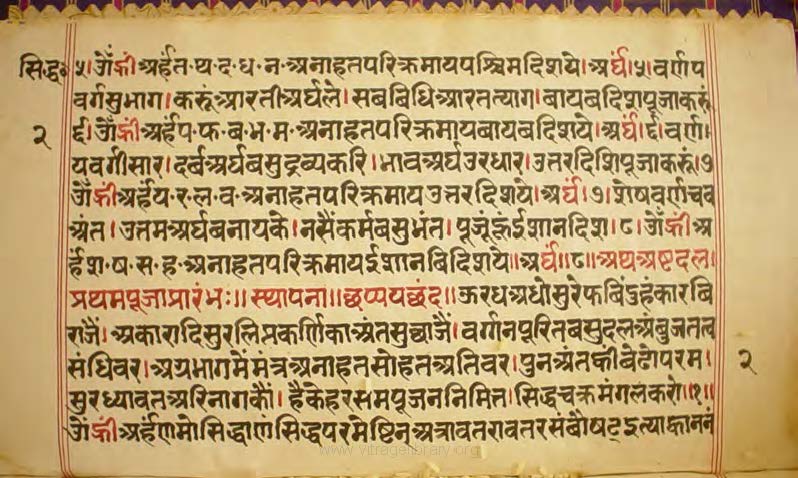 सिद्ध॰
५। ॐ ह्रीं अर्हं त·थ·द·ध·न·अनाहतपरिक्रमाय पश्चिमदिशये। अर्घं। ५। वर्ण प
वर्ग सुभाग। करूं आरती अर्घ ले। सब बिधि आरत त्याग। बायब दिश पूजा करूं
र्द्द। ॐ ह्रीं अर्हं प·फ·ब·भ·म·अनाहतपरिक्रमाय बायबदिशये। अर्घं। र्द्द। वर्ण।
य वर्गी सार। दर्ब अर्घ बसु द्रव्य करि। भाव अर्घ उर धार। उत्तर दिशि पूजा करूं। ७
ॐ ह्रीं अर्हं य·र·ल·व·अनाहतपरिक्रमाय उत्तरदिशये। अर्घं। ७। शेष वर्ण चव
अंत। उतम अर्घ बनायके। नसैं कर्म बसु भंत। पूजूं ईशान दिश। ८। ॐ ह्रीं अ
र्हं श·ष·स·ह·अनाहतपरिक्रमाय ईशानबिदिशये॥ अर्घं॥ ८॥ अथ अष्टदल
प्रथमपूजाप्रारंभः॥ स्थापना॥ छप्पय छंद॥ ऊरध अधो सु रेफ बिंदु हंकार बि
राजैं। अकारादि सुर लिप्त कर्णिका अंत सु छाजैं। वर्गन पूरित बसुदल अंबुज तत्व
संधिवर। अग्रभाग में मंत्र अनाहत सोहत अतिवर। पुन अंत ह्रीं बेढो परम।
सुर ध्यावत अरि नाग कौं। है केहर सम पूजन निमित। सिद्धचक्र मंगल करो॥ १॥
ॐ ह्रीं अर्हं णमो सिद्धाण सिद्धपरमेष्टिन अत्रावतरावतर संबौषट् इत्याह्वाननं
२
२
www.vitragelibrary.org